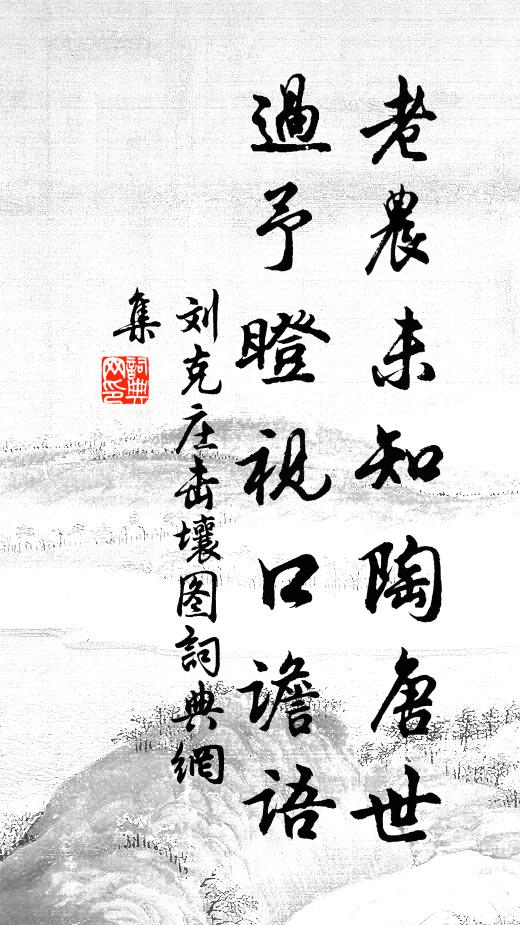 老農未知陶唐世
過予瞪視口譫語
刘克庄击壤图詞典網
集
詞典网印